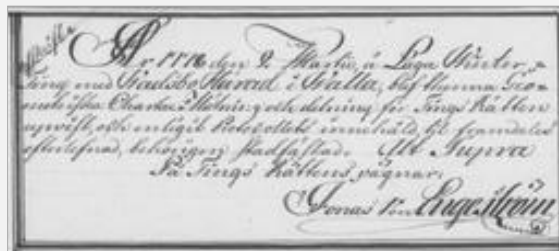 Afskrift
År 1776 den 2 Martii, å Laga Winter
Ting med Wadsbo Härad i Walla, blef thenna Geo-
metriska Charta, Mätning och delning för Tings Rätten
upwist, och enligit Protocollets innehåld, til framdeles
efterlefnad, behörigen stadfästad. Ut Supra
På Tings Rättens wägnar.
Jonas von Engeström